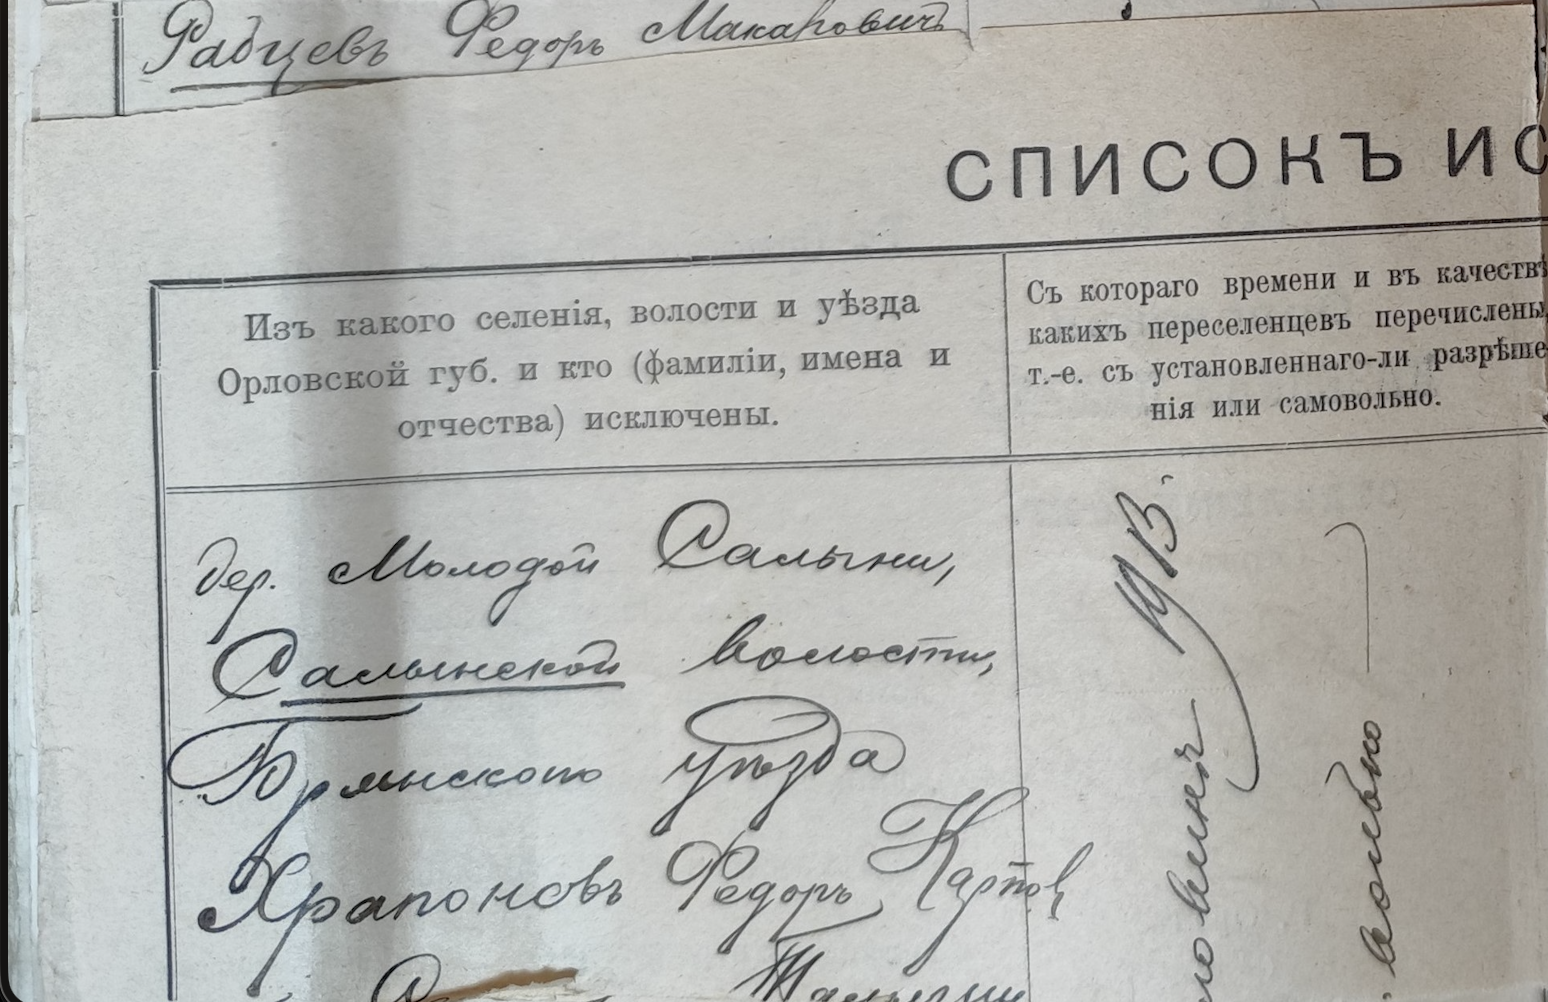 Рабцевъ Федоръ Макаровичъ
СПИСОКЪ ИС
Изъ какого селенія, волости и уѣзда
Орловской губ. и кто (фамиліи, имена и
отчества) исключены.
Съ котораго времени и въ качествѣ
какихъ переселенцевъ перечислены,
т.-е. съ установленнаго-ли разрѣше
нія или самовольно.
дер. Молодой Салыни,
Салынской волости,
Брянскаго уѣзда
Храпоновъ Федоръ Карпов
вольно